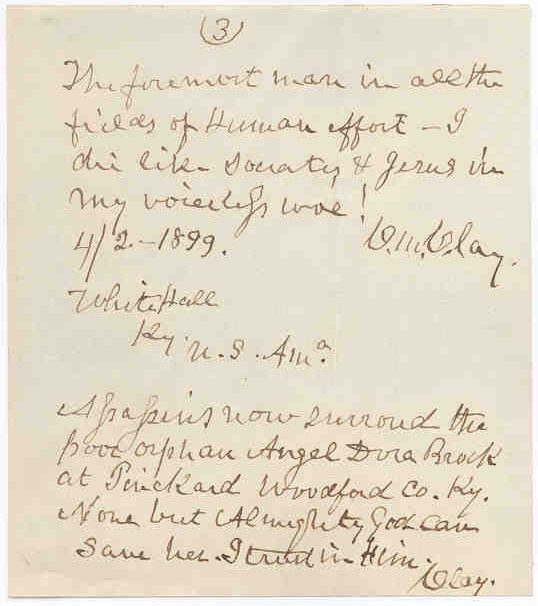 (3)
The foremost man in all the
fields of Human effort – I
die like Socrates, & Jesus in
my voiceless woe!
4/2.–1899. C.M. Clay.
White Hall
Ky. U.S. Amª.
Assassins now surround the
poor orphan Angel Dora Brock
at Pinckard Woodford Co. Ky.
None but Almighty God can
save her. I trust in Him.
Clay.